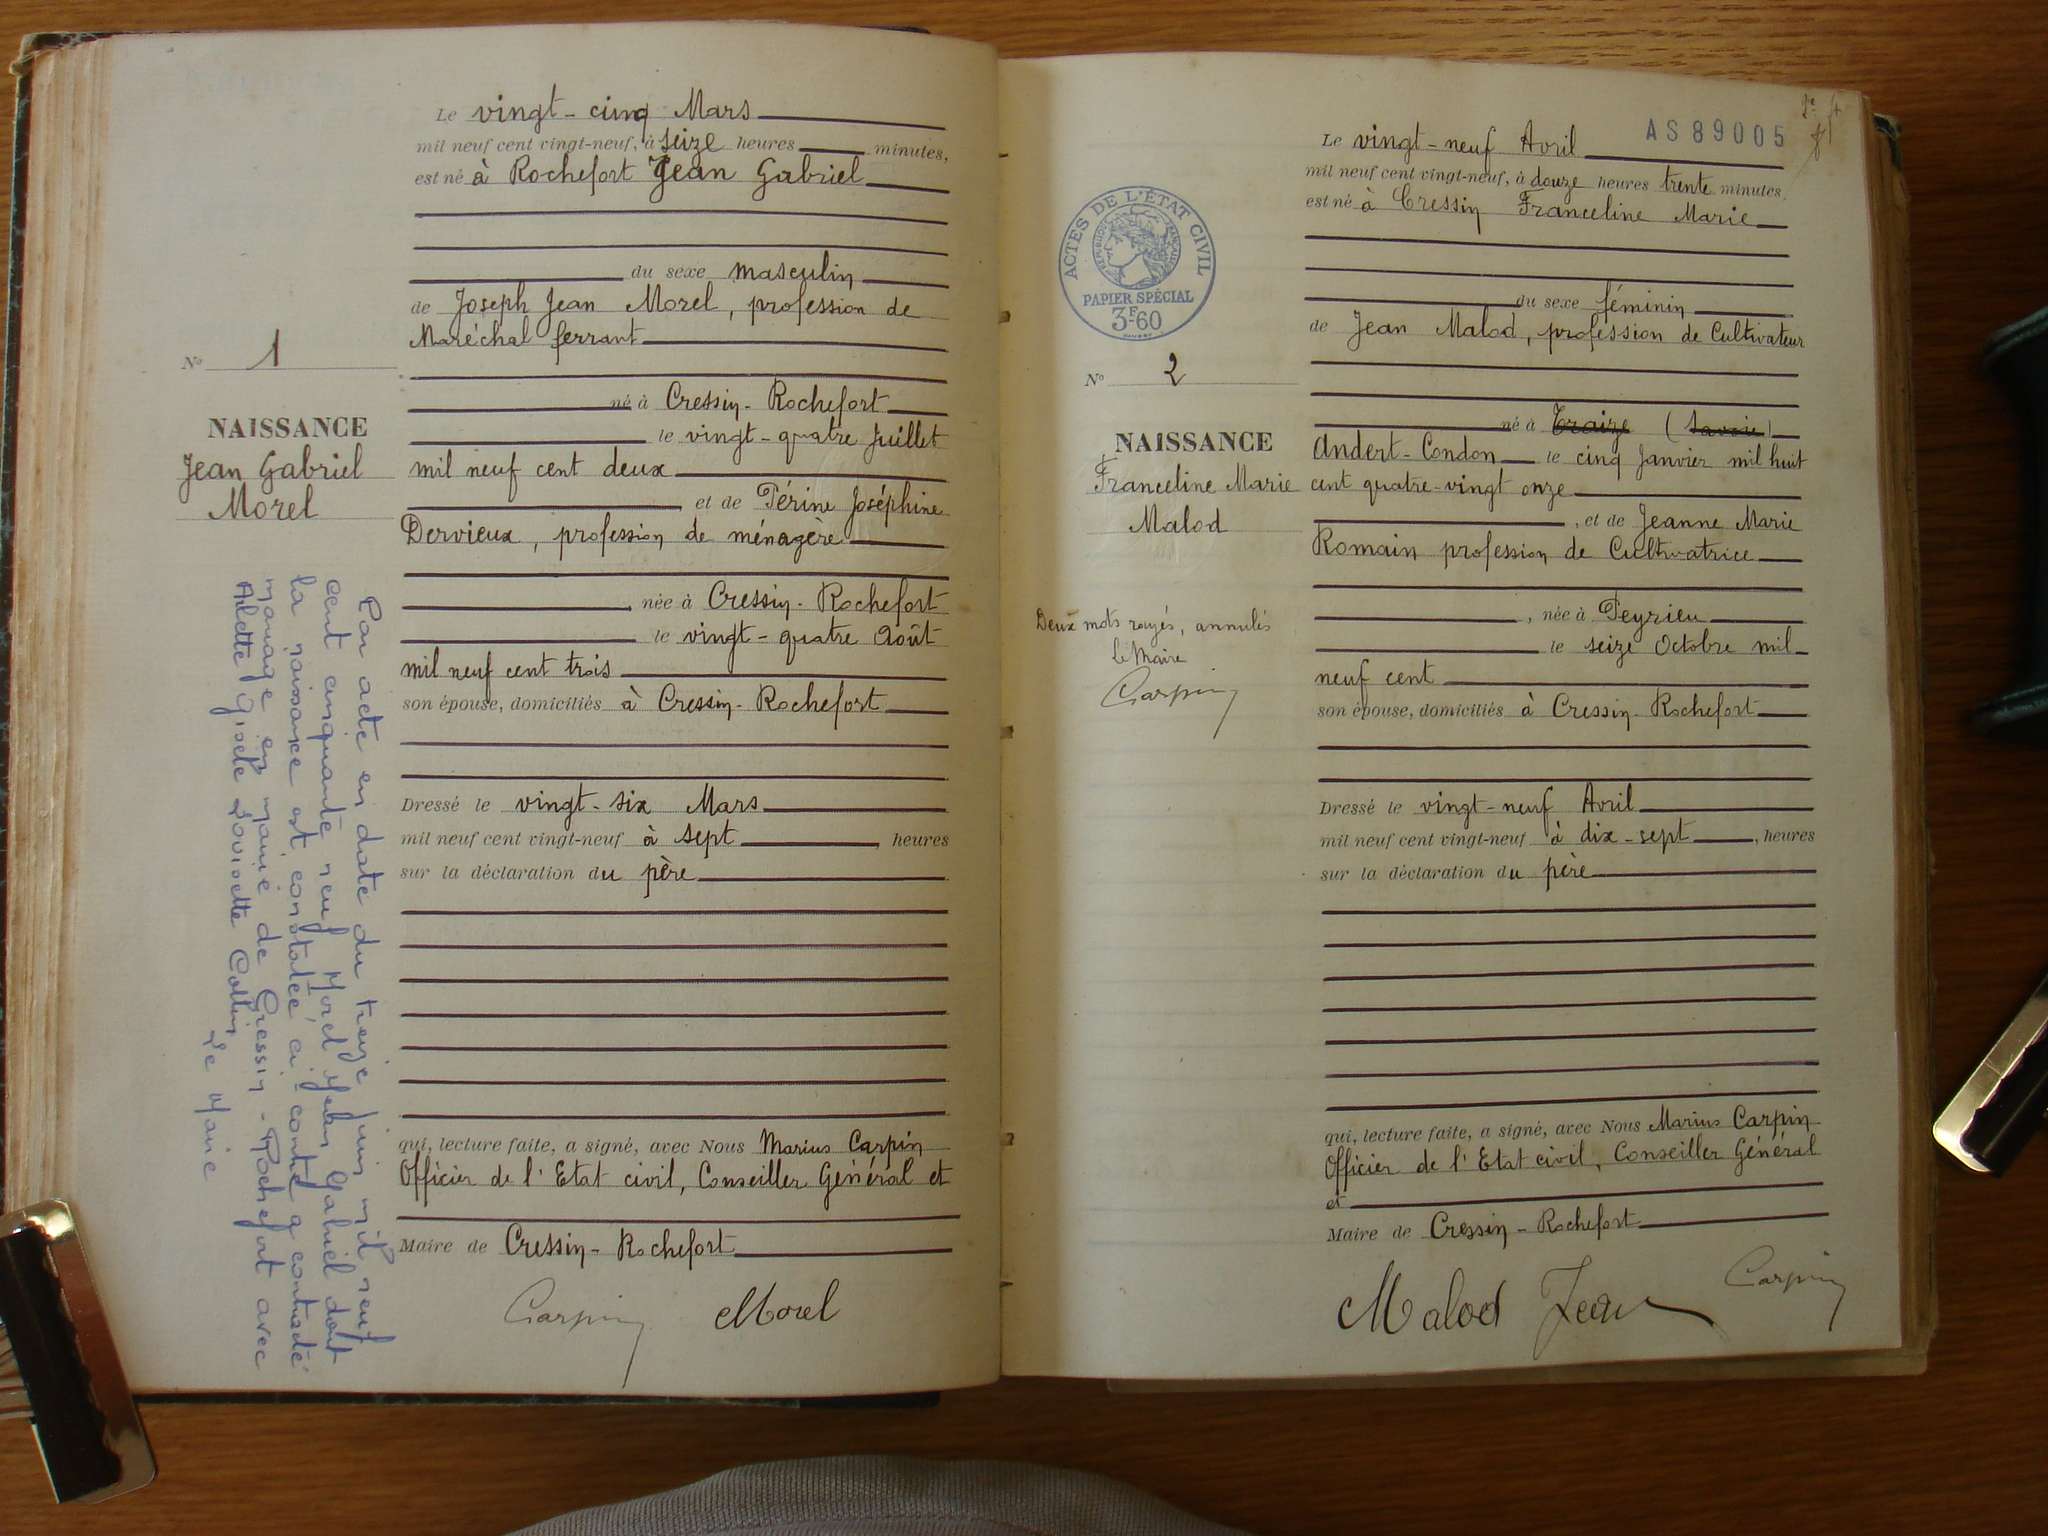 Le vingt-cinq Mars
mil neuf cent vingt-neuf, à seize heures minutes,
est né à Rochefort Jean Gabriel
du sexe masculin
de Joseph Jean Morel, profession de
Maréchal ferrant
né à Cressin-Rochefort
le vingt-quatre Juillet
mil neuf cent deux
et de Périne Joséphine
Dervieux, profession de ménagère
, née à Cressin-Rochefort
le vingt-quatre Août
mil neuf cent trois
son épouse, domiciliés à Cressin-Rochefort
Dressé le vingt-six Mars
mil neuf cent vingt-neuf à sept , heures
sur la déclaration du père
qui, lecture faite, a signé, avec Nous Marius Carpin
Officier de l'Etat civil, Conseiller Général et
Maire de Cressin-Rochefort
Carpin Morel
No 1
NAISSANCE
Jean Gabriel
Morel
Par acte en date du treize juin mil neuf
cent cinquante neuf, Morel Jean Gabriel dont
la naissance est constatée ci-contre a contracté
mariage en mairie de Cressin-Rochefort avec
Arlette Gisèle Louisette
Le Maire
AS89005
Le vingt-neuf Avril
mil neuf cent vingt-neuf, à douze heures trente minutes,
est né à Cressin Franceline Marie
du sexe féminin
de Jean Malod, profession de Cultivateur
né à Traize (Savoie)
Andert-Condon le cinq Janvier mil huit
cent quatre-vingt onze
, et de Jeanne Marie
Romain profession de Cultivatrice
, née à Peyrieu
le seize Octobre mil
neuf cent
son épouse, domiciliés à Cressin-Rochefort
Dressé le vingt-neuf Avril
mil neuf cent vingt-neuf à dix-sept , heures
sur la déclaration du père
qui, lecture faite, a signé, avec Nous Marius Carpin
Officier de l'Etat civil, Conseiller Général
et
Maire de Cressin-Rochefort
Malod Jean Carpin
ACTES DE L'ÉTAT CIVIL
RÉPUBLIQUE FRANÇAISE
PAPIER SPÉCIAL
3F60
No 2
NAISSANCE
Franceline Marie
Malod
Deux mots rayés, annulés
le Maire
Carpin